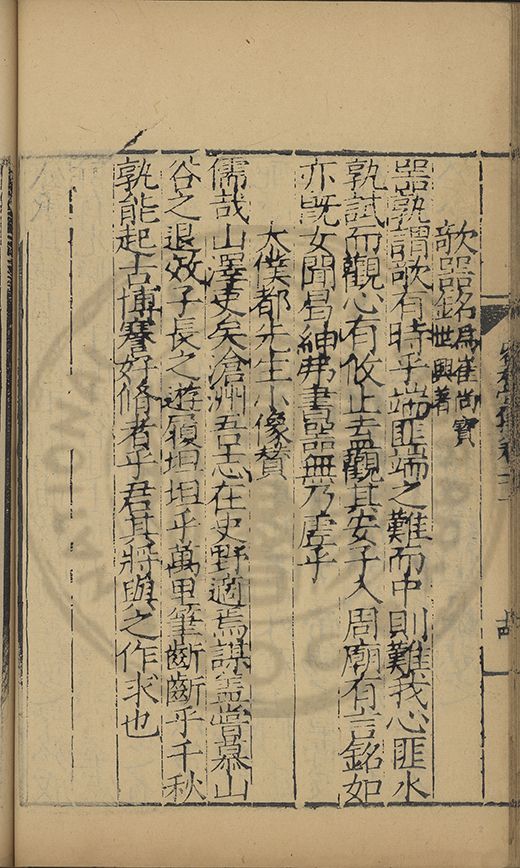 欹器銘爲崔尚寶世興著
器孰謂欹有時乎端匪端之難而中則難我心匪水
孰試而觀心有攸止盍觀其安子入周廟有言銘如
亦旣女聞曷紳弗書器無乃虛乎
太僕都先生小像贊
儒哉山澤史矣滄洲吾志在史野適焉謀盖嘗慕山
谷之退效子長之遊履坦坦乎萬里筆齗齗乎千秋
孰能起古博謇好脩者乎君其將與之作求也